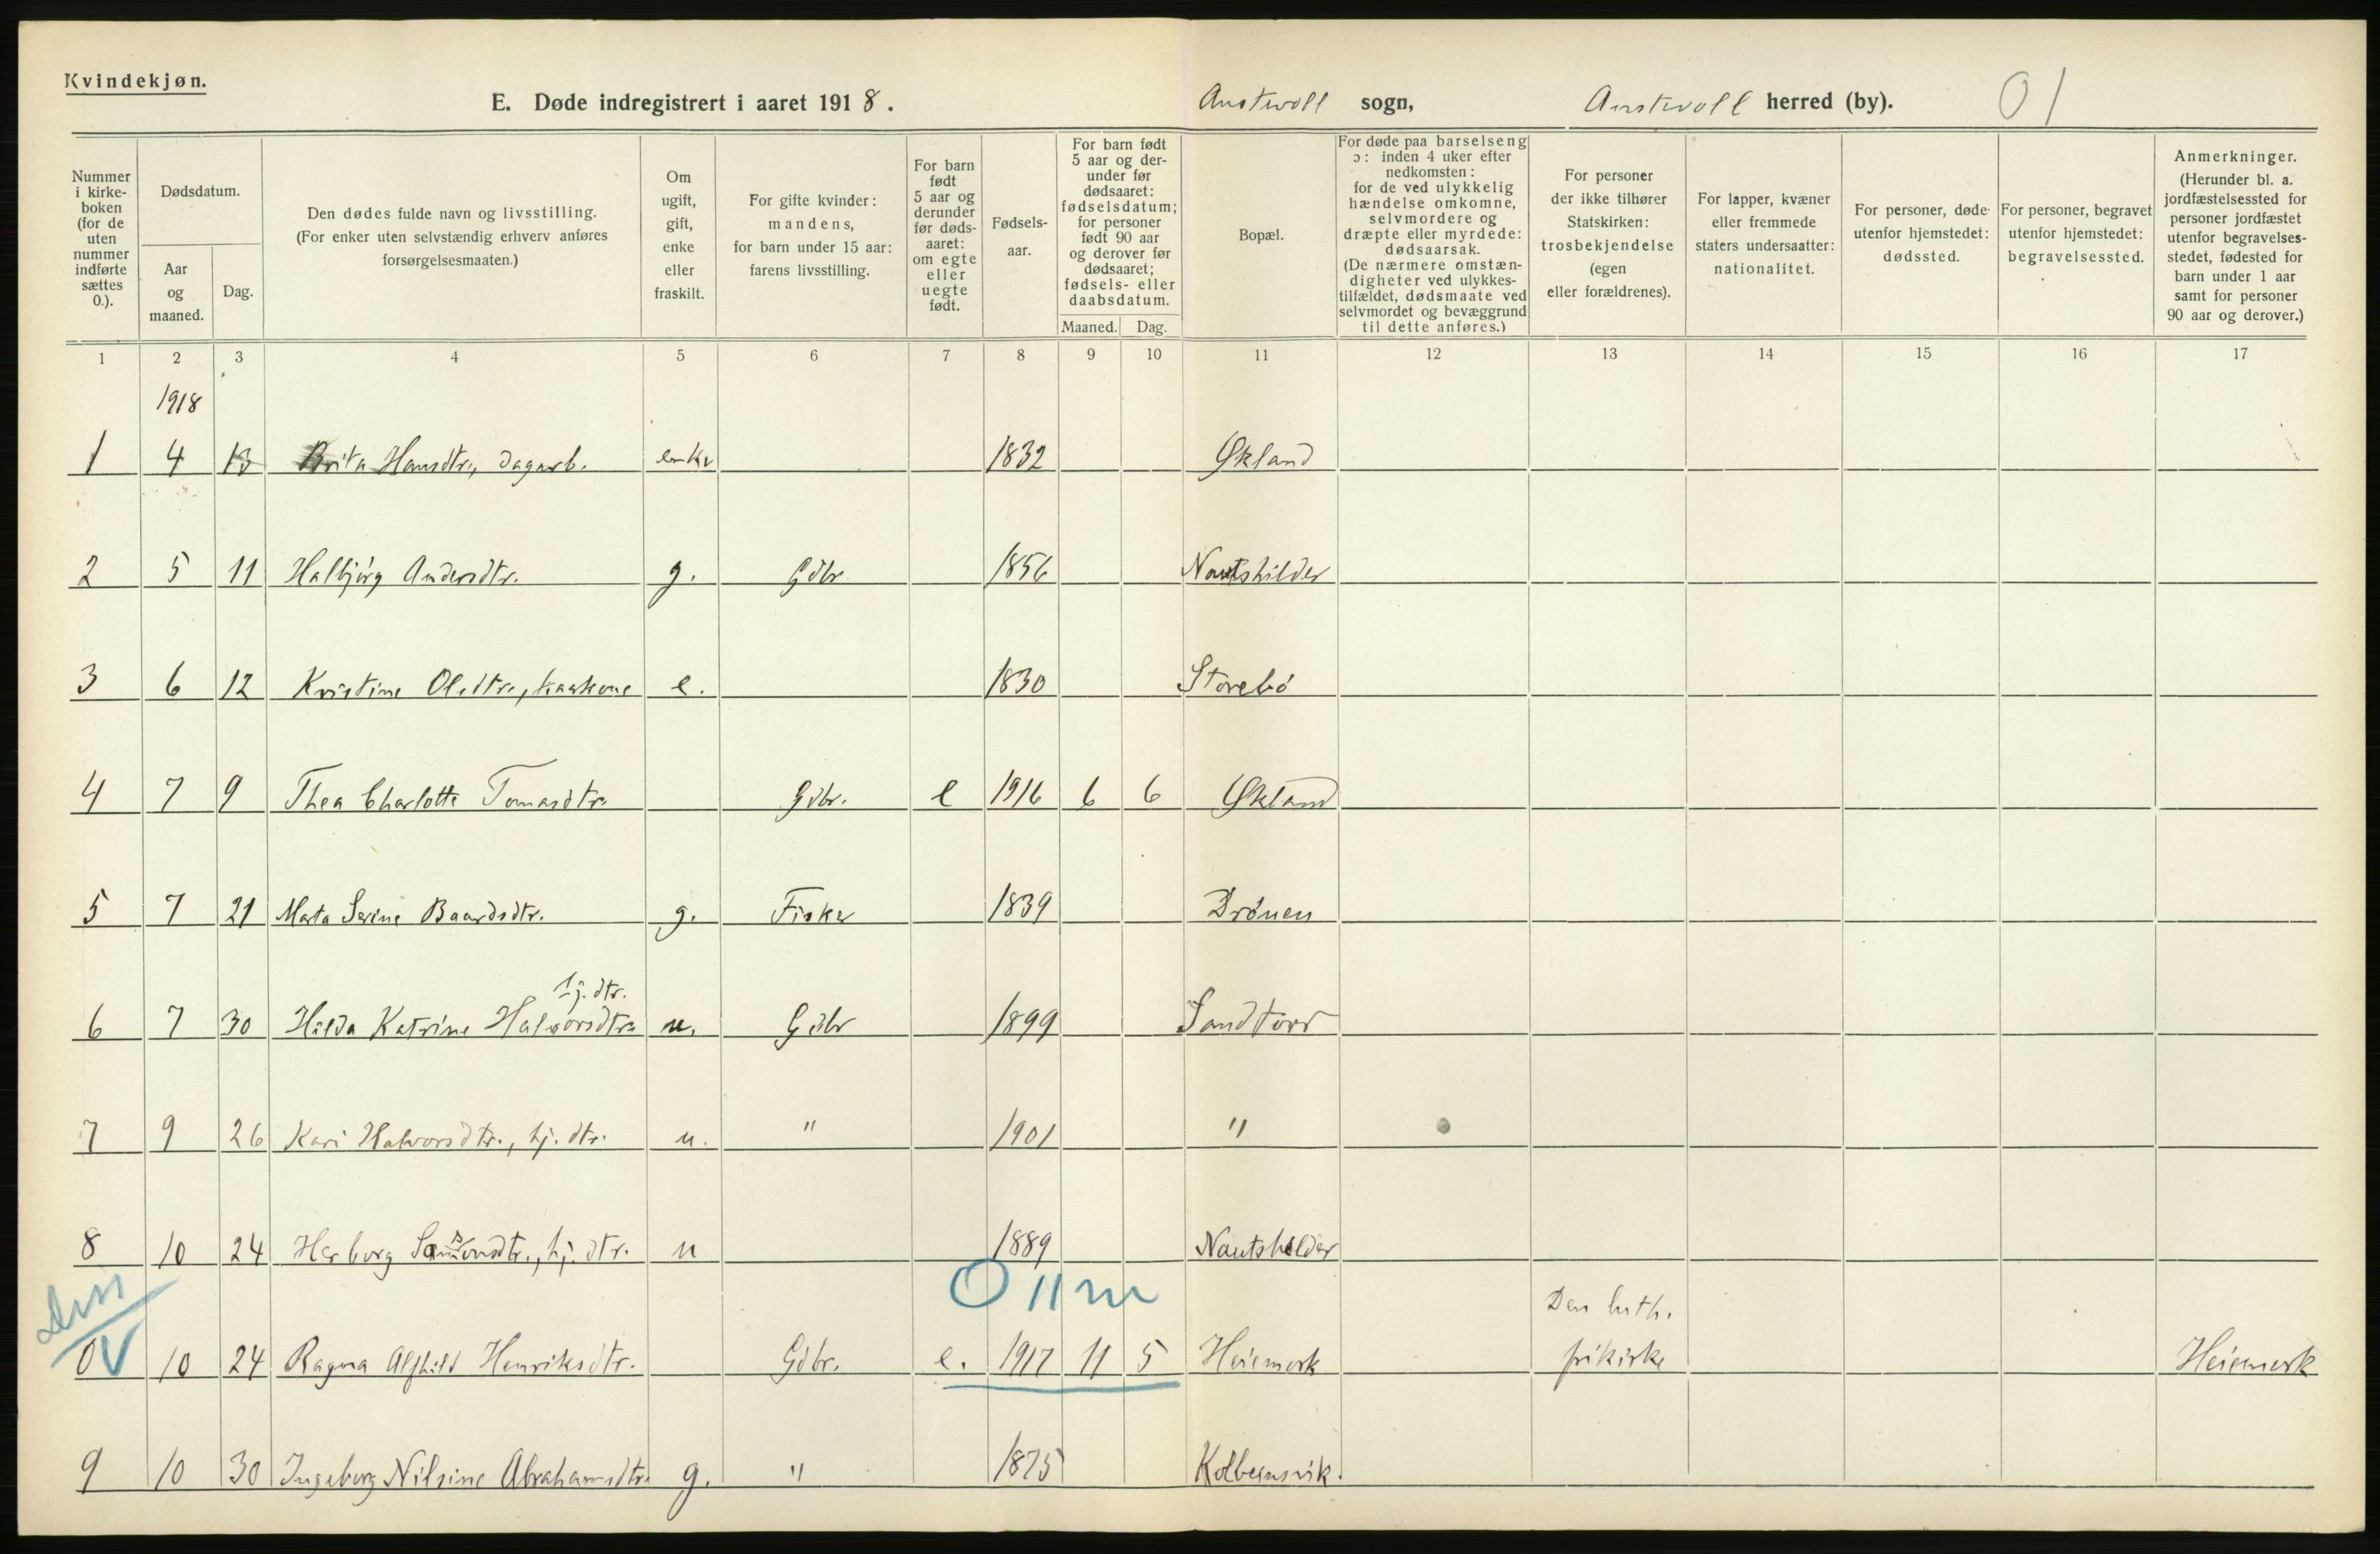 Kvindekjøn.
E. Døde indregistrert i aaret 1918.
Austevoll sogn, Austevoll herred (by). 01
Nummer i kirke- boken (for de uten nummer indførte sættes 0.).
Dødsdatum.
Aar og maaned.
Dag.
Den dødes fulde navn og livsstilling.
(For enker uten selvstændig erhverv anføres
forsørgelsesmaaten.)
Om ugift, gift, enke eller fraskilt.
For gifte kvinder: mandens, for barn under 15 aar: farens livsstilling.
For barn født 5 aar og derunder før døds- aaret: om egte eller uegte født.
Fødsels- aar.
For barn født 5 aar og der- under før dødsaaret: fødselsdatum; for personer født 90 aar og derover før dødsaaret; fødsels- eller daabsdatum.
Maaned. Dag.
Bopæl.
For døde paa barselseng ɔ: inden 4 uker efter nedkomsten: for de ved ulykkelig hændelse omkomne, selvmordere og dræpte eller myrdede: dødsaarsak. (De nærmere omstæn- digheter ved ulykkes- tilfældet, dødsmaate ved selvmordet og bevæggrund til dette anføres.)
For personer der ikke tilhører Statskirken: trosbekjendelse (egen eller forældrenes).
For lapper, kvæner eller fremmede staters undersaatter: nationalitet.
For personer, døde utenfor hjemstedet: dødssted.
For personer, begravet utenfor hjemstedet: begravelsessted.
Anmerkninger. (Herunder bl. a. jordfæstelsessted for personer jordfæstet utenfor begravelses- stedet, fødested for barn under 1 aar samt for personer 90 aar og derover.)
1 2 3 4 5 6 7 8 9 10 11 12 13 14 15 16 17
1918
1 4 13 Brita Hansdtr., dagarb. enke 1832 Økland
2 5 11 Halbjörg Andersdtr. g. Gdbr 1856 Nautshilder
3 6 12 Kristine Olsdtr., kaarkone e. 1830 Storebö
4 7 9 Thea Charlotte Tomasdtr. Gdbr. e 1916 6 6 Økland
5 7 21 Marta Serine Baardsdtr. g. Fisker 1839 Drönen
hj. dtr.
6 7 30 Hilda Katrine Halvorsdtr. u. Gdbr 1899 Sandtorv
7 9 26 Kari Halvorsdtr., hj. dtr. u. " 1901 "
8 10 24 Herborg Samsonsdtr., hj. dtr. u 1889 Nautshilder
Diss
0 11 m
Den luth.
0 V 10 24 Ragna Alfhild Henriksdtr. Gdbr. e. 1917 11 5 Heiemark frikirke Heiemark
9 10 30 Ingeborg Nilsine Abrahamsdtr. g. " 1875 Kolbeinsvik.